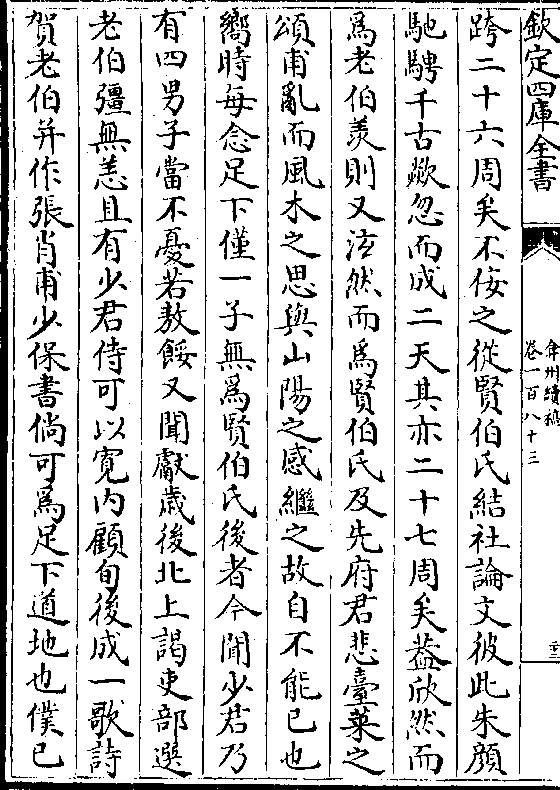 欽定四庫全書
弇州續稿
卷一百八十三
跨二十六周矣不佞之從賢伯氏結社論文彼此朱顔
馳騁千古歘忽而成二天其亦二十七周矣葢欣然而
爲老伯羨則又泫然而爲賢伯氏及先府君悲臺萊之
頌甫亂而風木之思與山陽之感繼之故自不能已也
嚮時每念足下僅一子無爲賢伯氏後者今聞少君乃
有四男子當不憂若敖餒又聞獻歲後北上謁吏部選
老伯彊無恙且有少君侍可以寛内顧旬後成一歌詩
賀老伯并作張肖甫少保書倘可爲足下道地也僕已